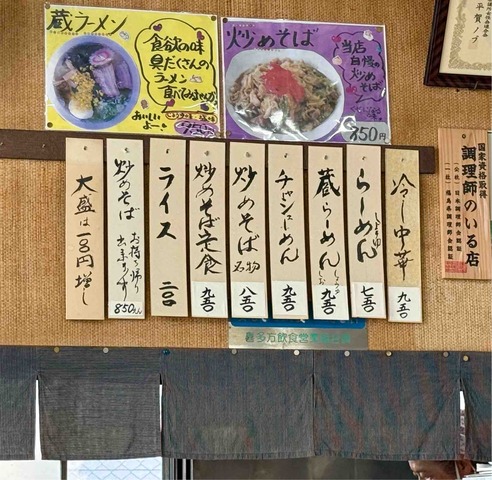 蔵ラーメン
食欲の味
具だくさんの
ラーメン
食べてみませんか。
おいしい
よ〜!
炒めそば
当店
自慢の
炒めそば
850円
冷し中華 九五〇
らーめん しょうゆ 七五〇
蔵らーめん しょうゆ しお 九五〇
チャーシューめん 九五〇
炒めそば 名物 八五〇
炒めそば定食 九五〇
ライス 二〇〇
炒めそば お持ち帰り 出来ます 850えん
大盛は 増し
国家資格取得
調理師のいる店
平賀ノブ